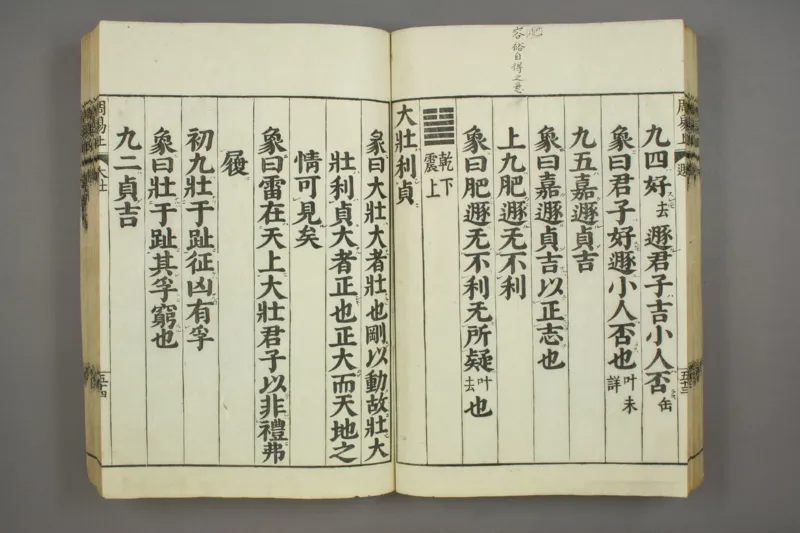 容俗自得之意
周易上
遯
五十三
九四好去遯君子吉小人否缶
象曰君子好遯小人否也叶未詳
九五嘉遯貞吉
象曰嘉遯貞吉以正志也
上九肥遯无不利
象曰肥遯无不利无所疑叶去也
乾下
震上
大壯利貞
彖曰大壯大者壯也剛以動故壯大
壯利貞大者正也正大而天地之
情可見矣
象曰雷在天上大壯君子以非禮弗
履
初九壯于趾征凶有孚
象曰壯于趾其孚窮也
九二貞吉
周易上
大壯
五十四